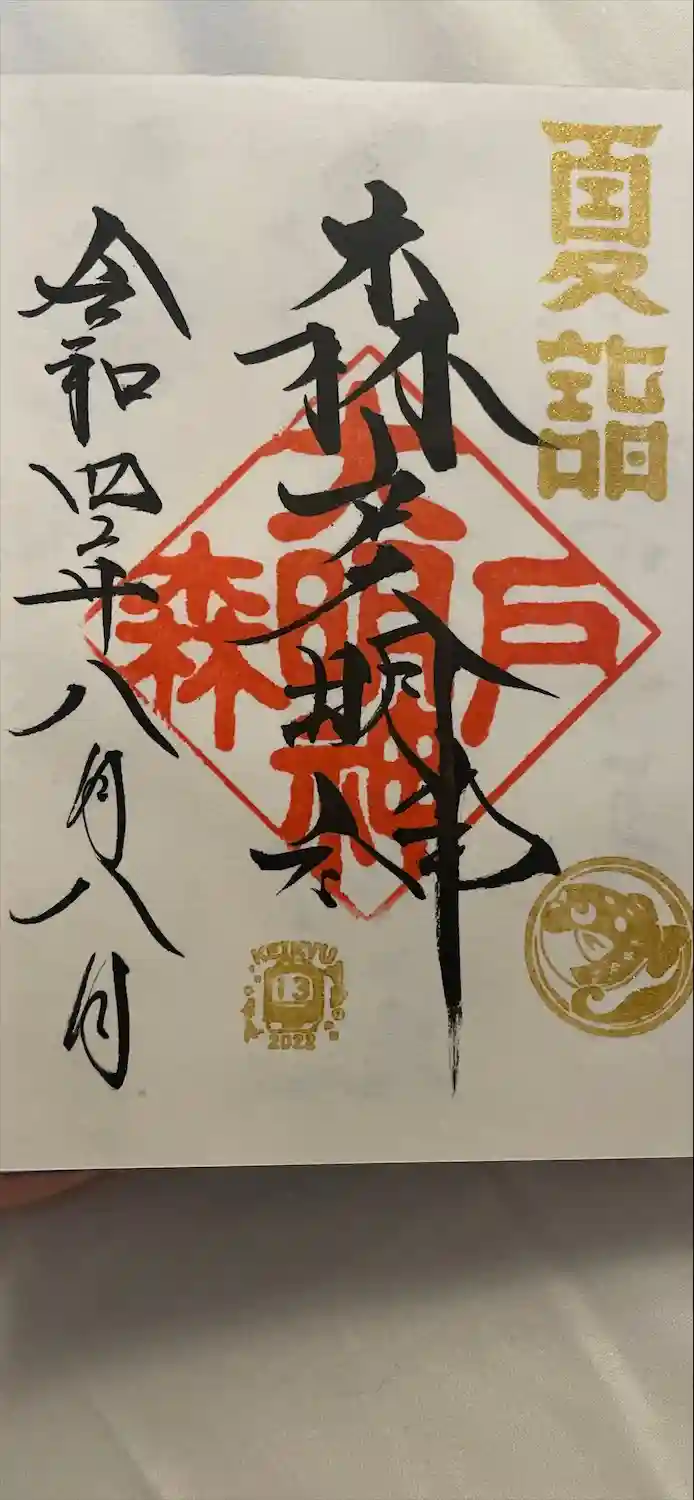 夏詣
森戸大明神
森戸
大明神
令和四年八月八日
KEIKYU
13
2022